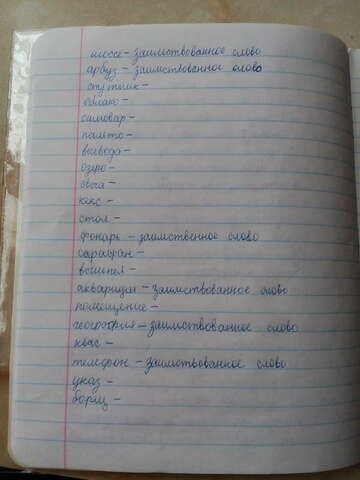 шоссе - заимствованное слово
арбуз - заимствованное слово
спутник -
облако -
самовар -
пальто -
воевода -
озеро -
овца -
кекс -
стол -
фонарь - заимственное слово
сарафан -
вошёл -
аквариум - заимствованное слово
помещение -
география - заимствованное слово
квас -
телефон - заимствованное слово
указ -
борщ -